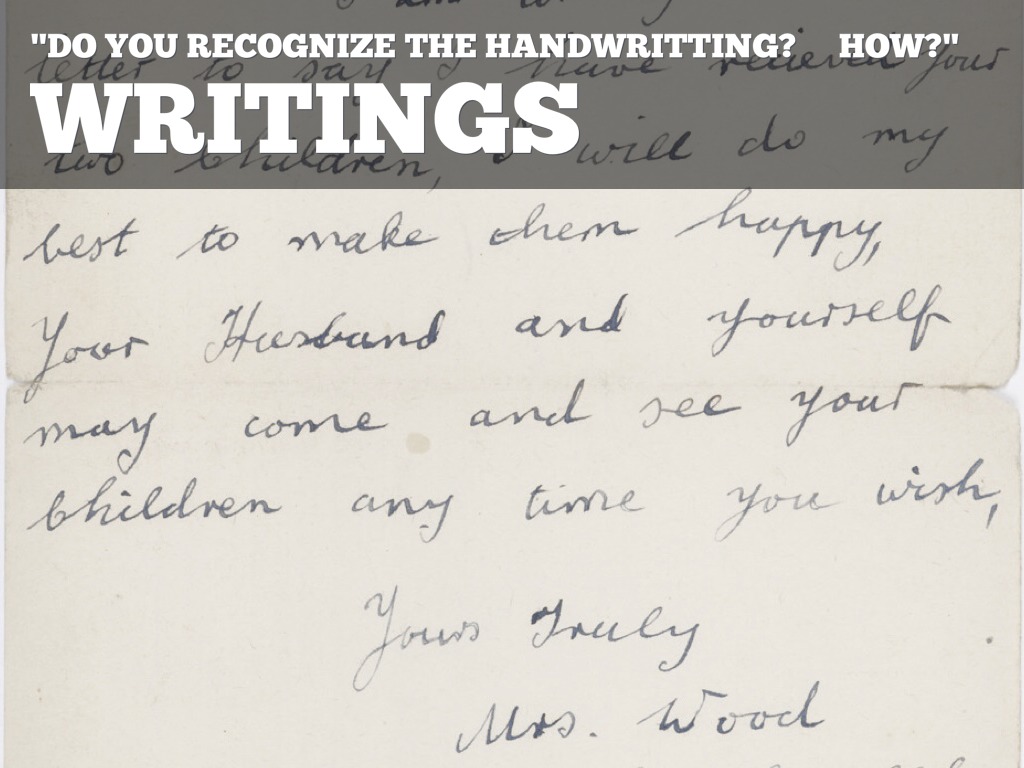 I am
"DO YOU RECOGNIZE THE HANDWRITTING? HOW?"
letter to say I have recieved your
WRITINGS
two Children, I will do my
best to make them happy,
Your Husband and yourself
may come and see your
Children any time you wish,
Yours Truly
Mrs. Wood